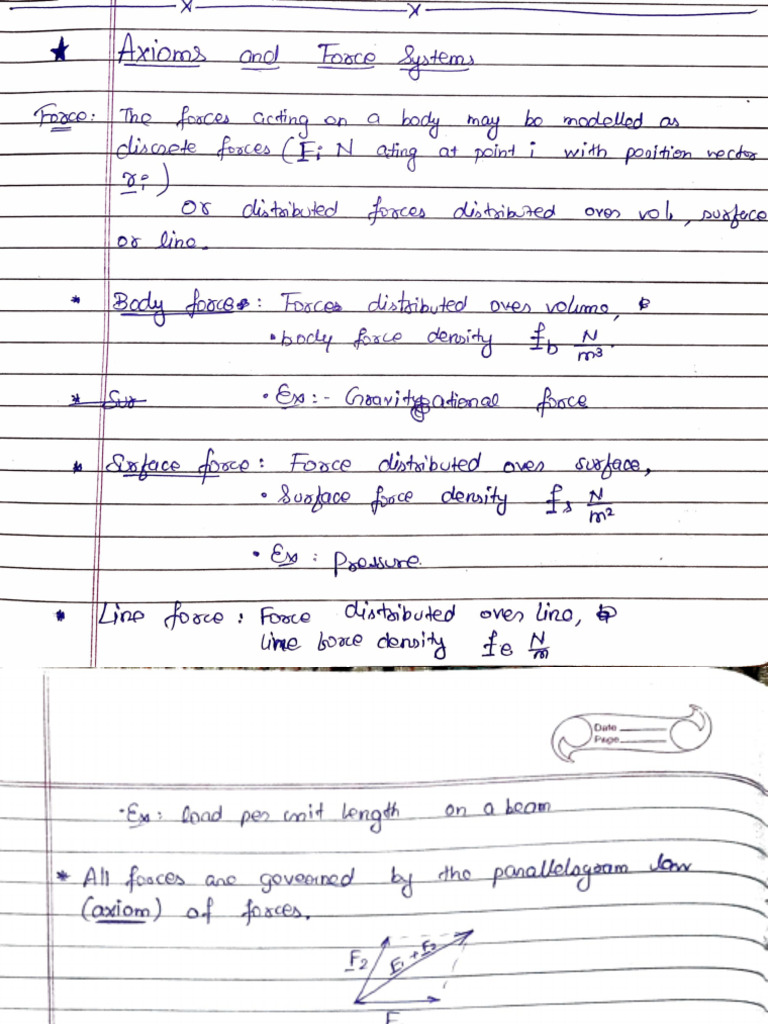 ★ Axioms and Force Systems
Force: The forces acting on a body may be modelled as
discrete forces (Fi N ating at point i with position vector
ri)
or distributed forces distributed over vol, surface
or line.
* Body force: Forces distributed over volume,
• body force density fb N/m³.
• Ex:- Gravitational force
* Surface force: Force distributed over surface,
• Surface force density fs N/m²
• Ex: Pressure.
* Line force: Force distributed over line,
line force density fe N/m
Date
Page
• Ex: load per unit length on a beam
* All forces are governed by the parallelogram law
(axiom) of forces.
F2 F1 + F2
F